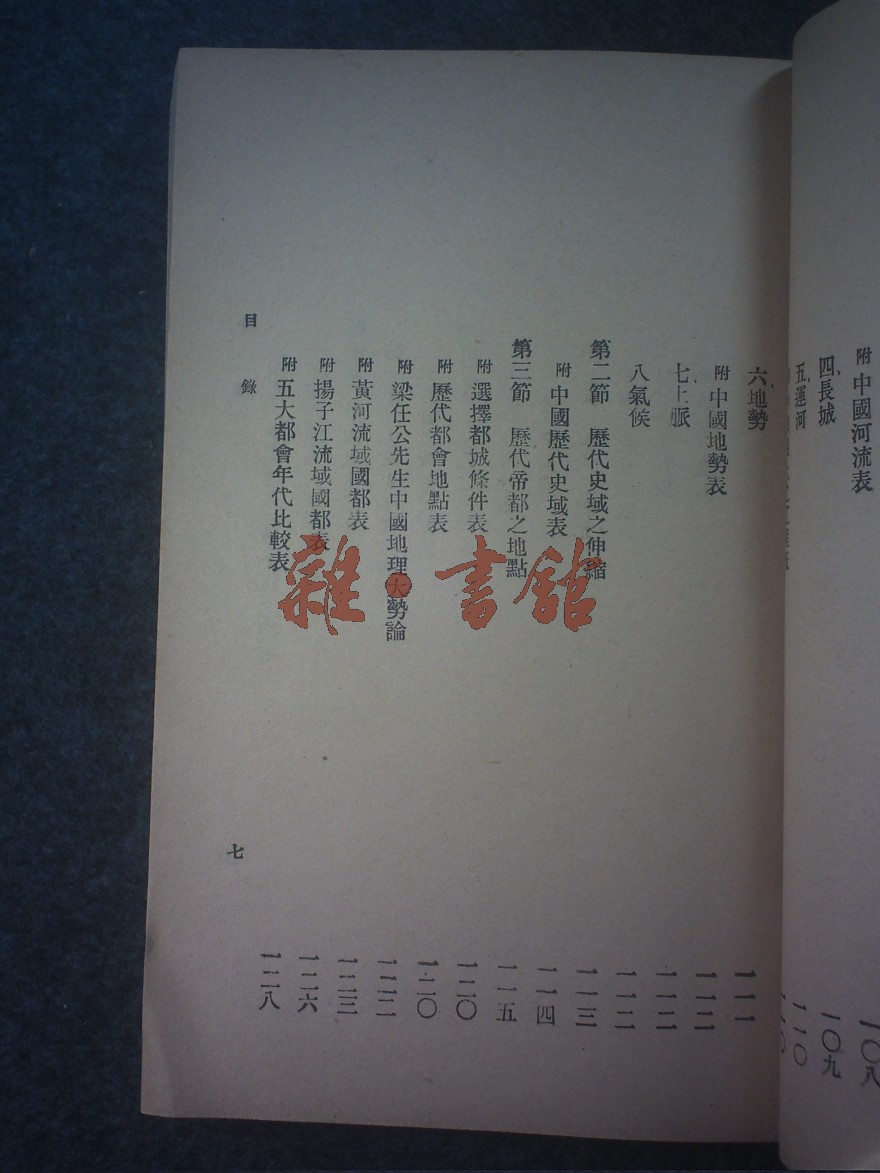 附 中國河流表 一〇八
四、長城 一〇九
五、運河 一一〇
六、地勢 一一一
附 中國地勢表 一一二
七、土脈 一一二
八氣候 一一二
第二節 歷代史域之伸縮 一一三
附 中國歷代史域表 一一四
第三節 歷代帝都之地點 一一五
附 選擇都城條件表 一二〇
附 歷代都會地點表 一二〇
附 梁任公先生中國地理大勢論 一二二
附 黃河流域國都表 一二三
附 揚子江流域國都表 一二六
附 五大都會年代比較表 一二八
目錄 七
雜·書館